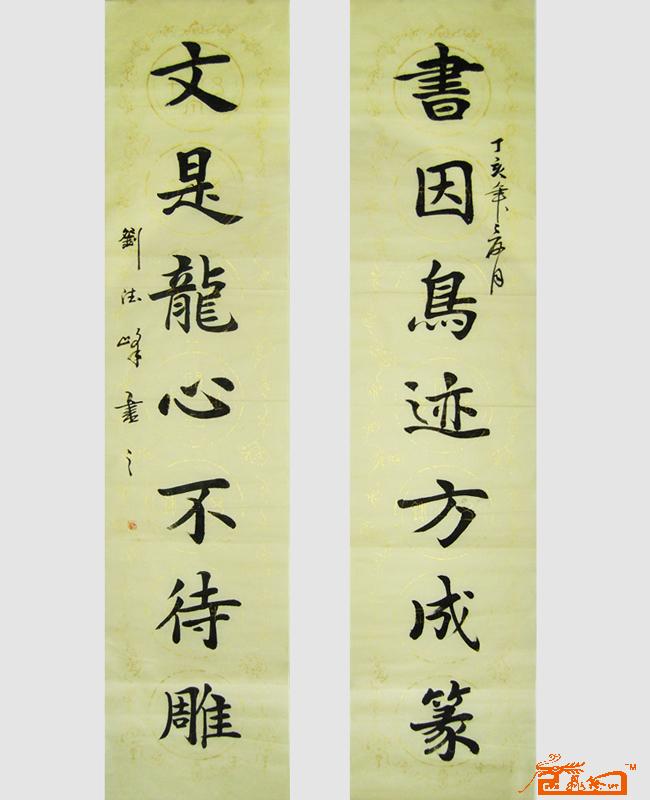 書因鳥迹方成篆
丁亥年三月
文是龍心不待雕
劉法峰書之
TM